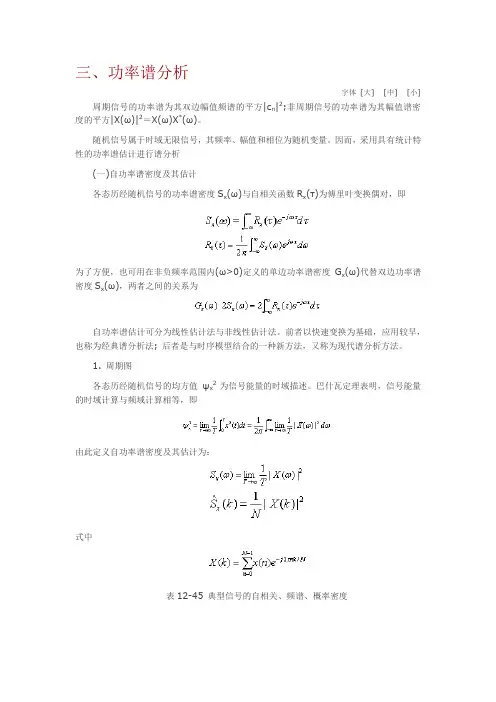 三、功率谱分析
字体 [大] [中] [小]
周期信号的功率谱为其双边幅值频谱的平方|cₙ|²;非周期信号的功率谱为其幅值谱密
度的平方|X(ω)|²＝X(ω)X*(ω)。
随机信号属于时域无限信号，其频率、幅值和相位为随机变量。因而，采用具有统计特
性的功率谱估计进行谱分析
(一)自功率谱密度及其估计
各态历经随机信号的功率谱密度Sₓ(ω)与自相关函数Rₓ(τ)为傅里叶变换偶对，即
Sₓ(ω)=∫_{-∞}^{∞}Rₓ(τ)e^{-jωτ}dτ
Rₓ(τ)=1/2π ∫_{-∞}^{∞}Sₓ(ω)e^{jωτ}dω
为了方便，也可用在非负频率范围内(ω>0)定义的单边功率谱密度 Gₓ(ω)代替双边功率谱
密度Sₓ(ω)，两者之间的关系为
Gₓ(ω) 2Sₓ(ω)=2∫_{-∞}^{∞}Rₓ(τ)e^{-jωτ}dτ
自功率谱估计可分为线性估计法与非线性估计法。前者以快速变换为基础，应用较早，
也称为经典谱分析法；后者是与时序模型结合的一种新方法，又称为现代谱分析方法。
1. 周期图
各态历经随机信号的均方值 ψₓ² 为信号能量的时域描述。巴什瓦定理表明，信号能量
的时域计算与频域计算相等，即
ψₓ²=lim_{T→∞} 1/T ∫_{0}^{T}x²(t)dt=1/2π ∫_{-∞}^{∞} lim_{T→∞} 1/T |X(ω)|²dω
由此定义自功率谱密度及其估计为:
Sₓ(ω)=lim_{T→∞} 1/T |X(ω)|²
Ŝₓ(k)=1/N |X(k)|²
式中
X(k)=∑_{n=0}^{N-1}x(n)e^{-j2πnk/N}
表12-45 典型信号的自相关、频谱、概率密度